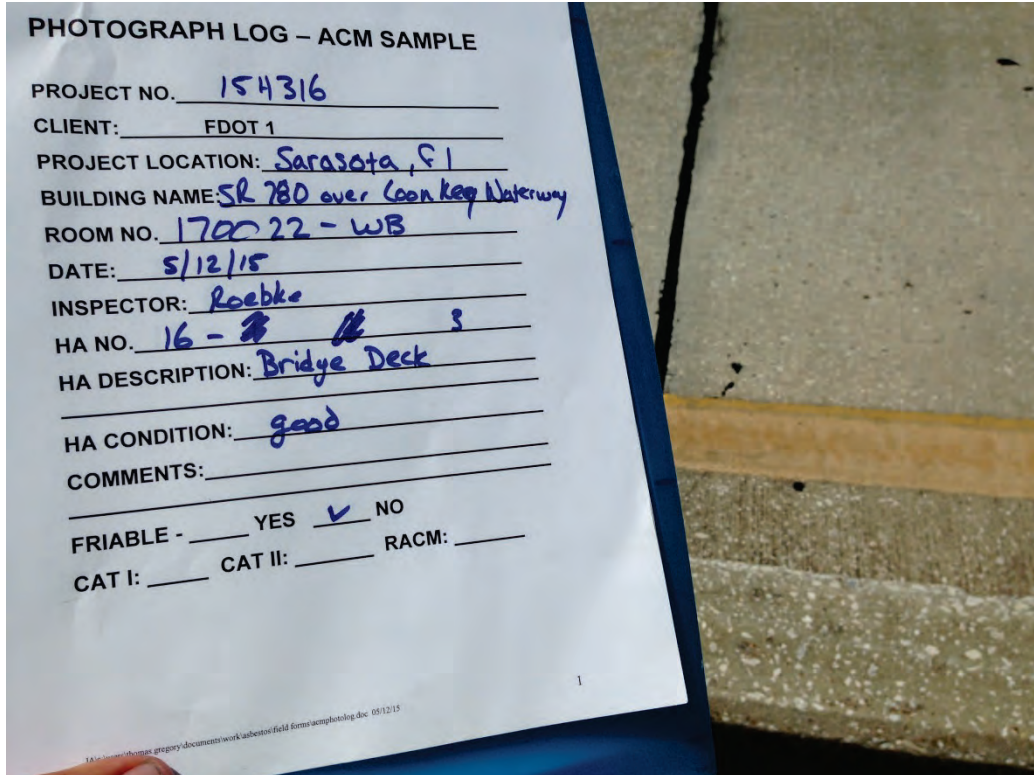 PHOTOGRAPH LOG – ACM SAMPLE
PROJECT NO. 154316
CLIENT: FDOT 1
PROJECT LOCATION: Sarasota, Fl
BUILDING NAME: SR 780 over Coon Key Waterway
ROOM NO. 170022 - WB
DATE: 5/12/15
INSPECTOR: Roebke
HA NO. 16 - 3
HA DESCRIPTION: Bridge Deck
HA CONDITION: good
COMMENTS:
FRIABLE - YES ✓ NO
CAT I: CAT II: RACM:
1
thomas gregory\documents\work\asbestos\field forms\acmphotolog.doc 05/12/15